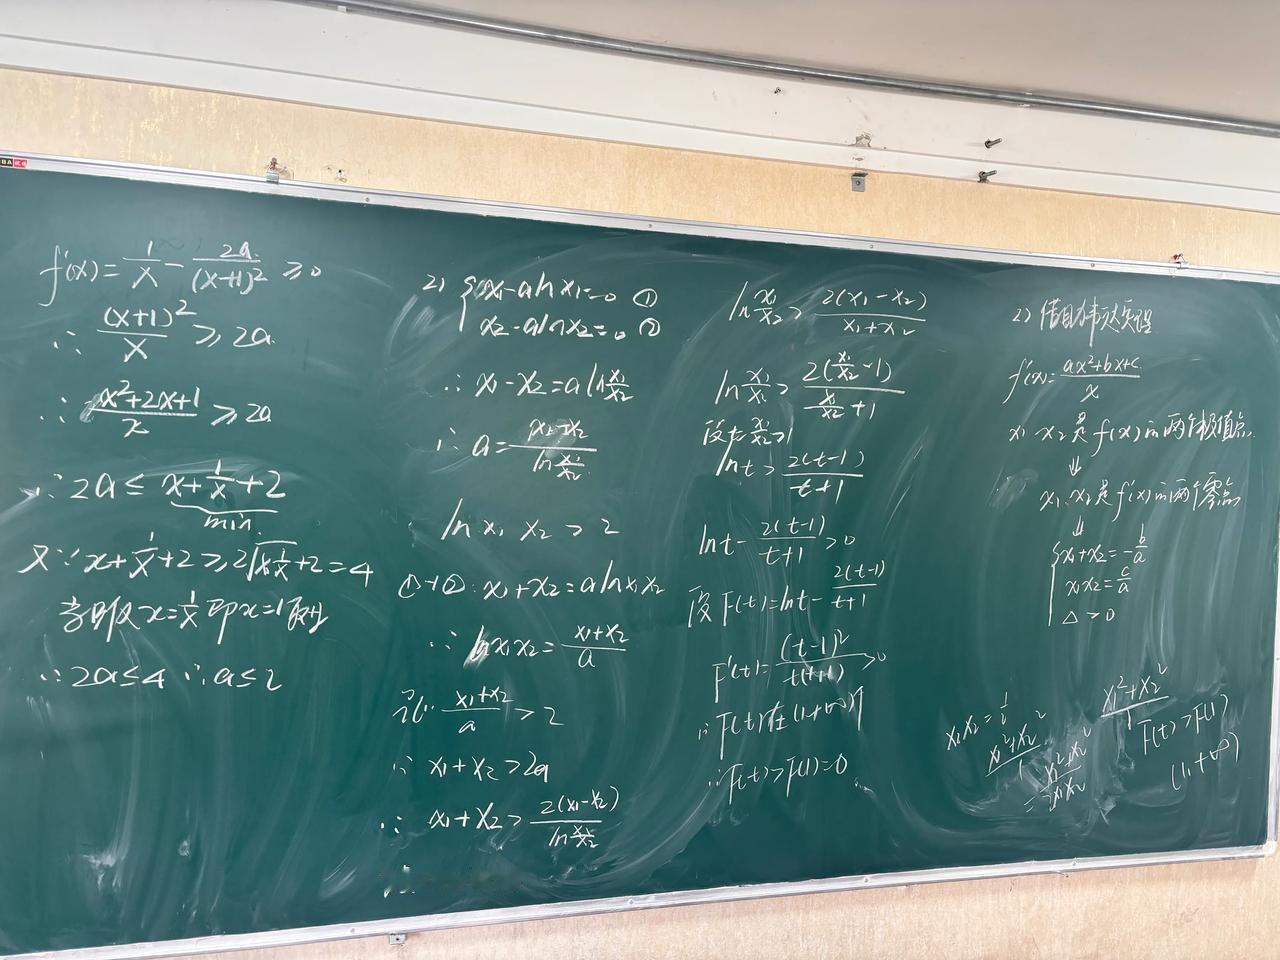 f'(x)=1/x-2a/(x+1)²≥0
∴ (x+1)²/x ≥2a
∴ (x²+2x+1)/x ≥2a
∴ 2a≤x+1/x+2
min
又∵x+1/x+2≥2√(x·1/x)+2=4
当且仅当x=1/x即x=1取"="
∴2a≤4 ∴a≤2
2) {x₁-alnx₁=0 ①
x₂-alnx₂=0 ②
∴ x₁-x₂=aln x₁/x₂
∴ a=(x₁-x₂)/(ln x₁/x₂)
lnx₁x₂>2
①+②: x₁+x₂=alnx₁x₂
∴ lnx₁x₂=(x₁+x₂)/a
证: (x₁+x₂)/a>2
∴ x₁+x₂>2a
∴ x₁+x₂>2(x₁-x₂)/(ln x₁/x₂)
∴
ln x₁/x₂>2(x₁-x₂)/(x₁+x₂)
ln x₁/x₂>2(x₁/x₂-1)/(x₁/x₂+1)
设t=x₁/x₂>1
lnt>2(t-1)/(t+1)
lnt-2(t-1)/(t+1)>0
设F(t)=lnt-2(t-1)/(t+1)
F'(t)=(t-1)²/t(t+1)>0
∴F(t)在(1,+∞)↑
∴F(t)>F(1)=0
2) 借助韦达定理
f'(x)=(ax²+bx+c)/x
x₁ x₂是f(x)的两个极值点
↓
x₁.x₂是f'(x)的两个零点
↓
{x₁+x₂=-b/a
x₁x₂=c/a
△>0
x₁x₂=1/2
(x₁²+x₂²)/1
=(x₁²+x₂²)/2x₁x₂
(x₁²+x₂²)/1
F(t)>F(1)
(1,+∞)